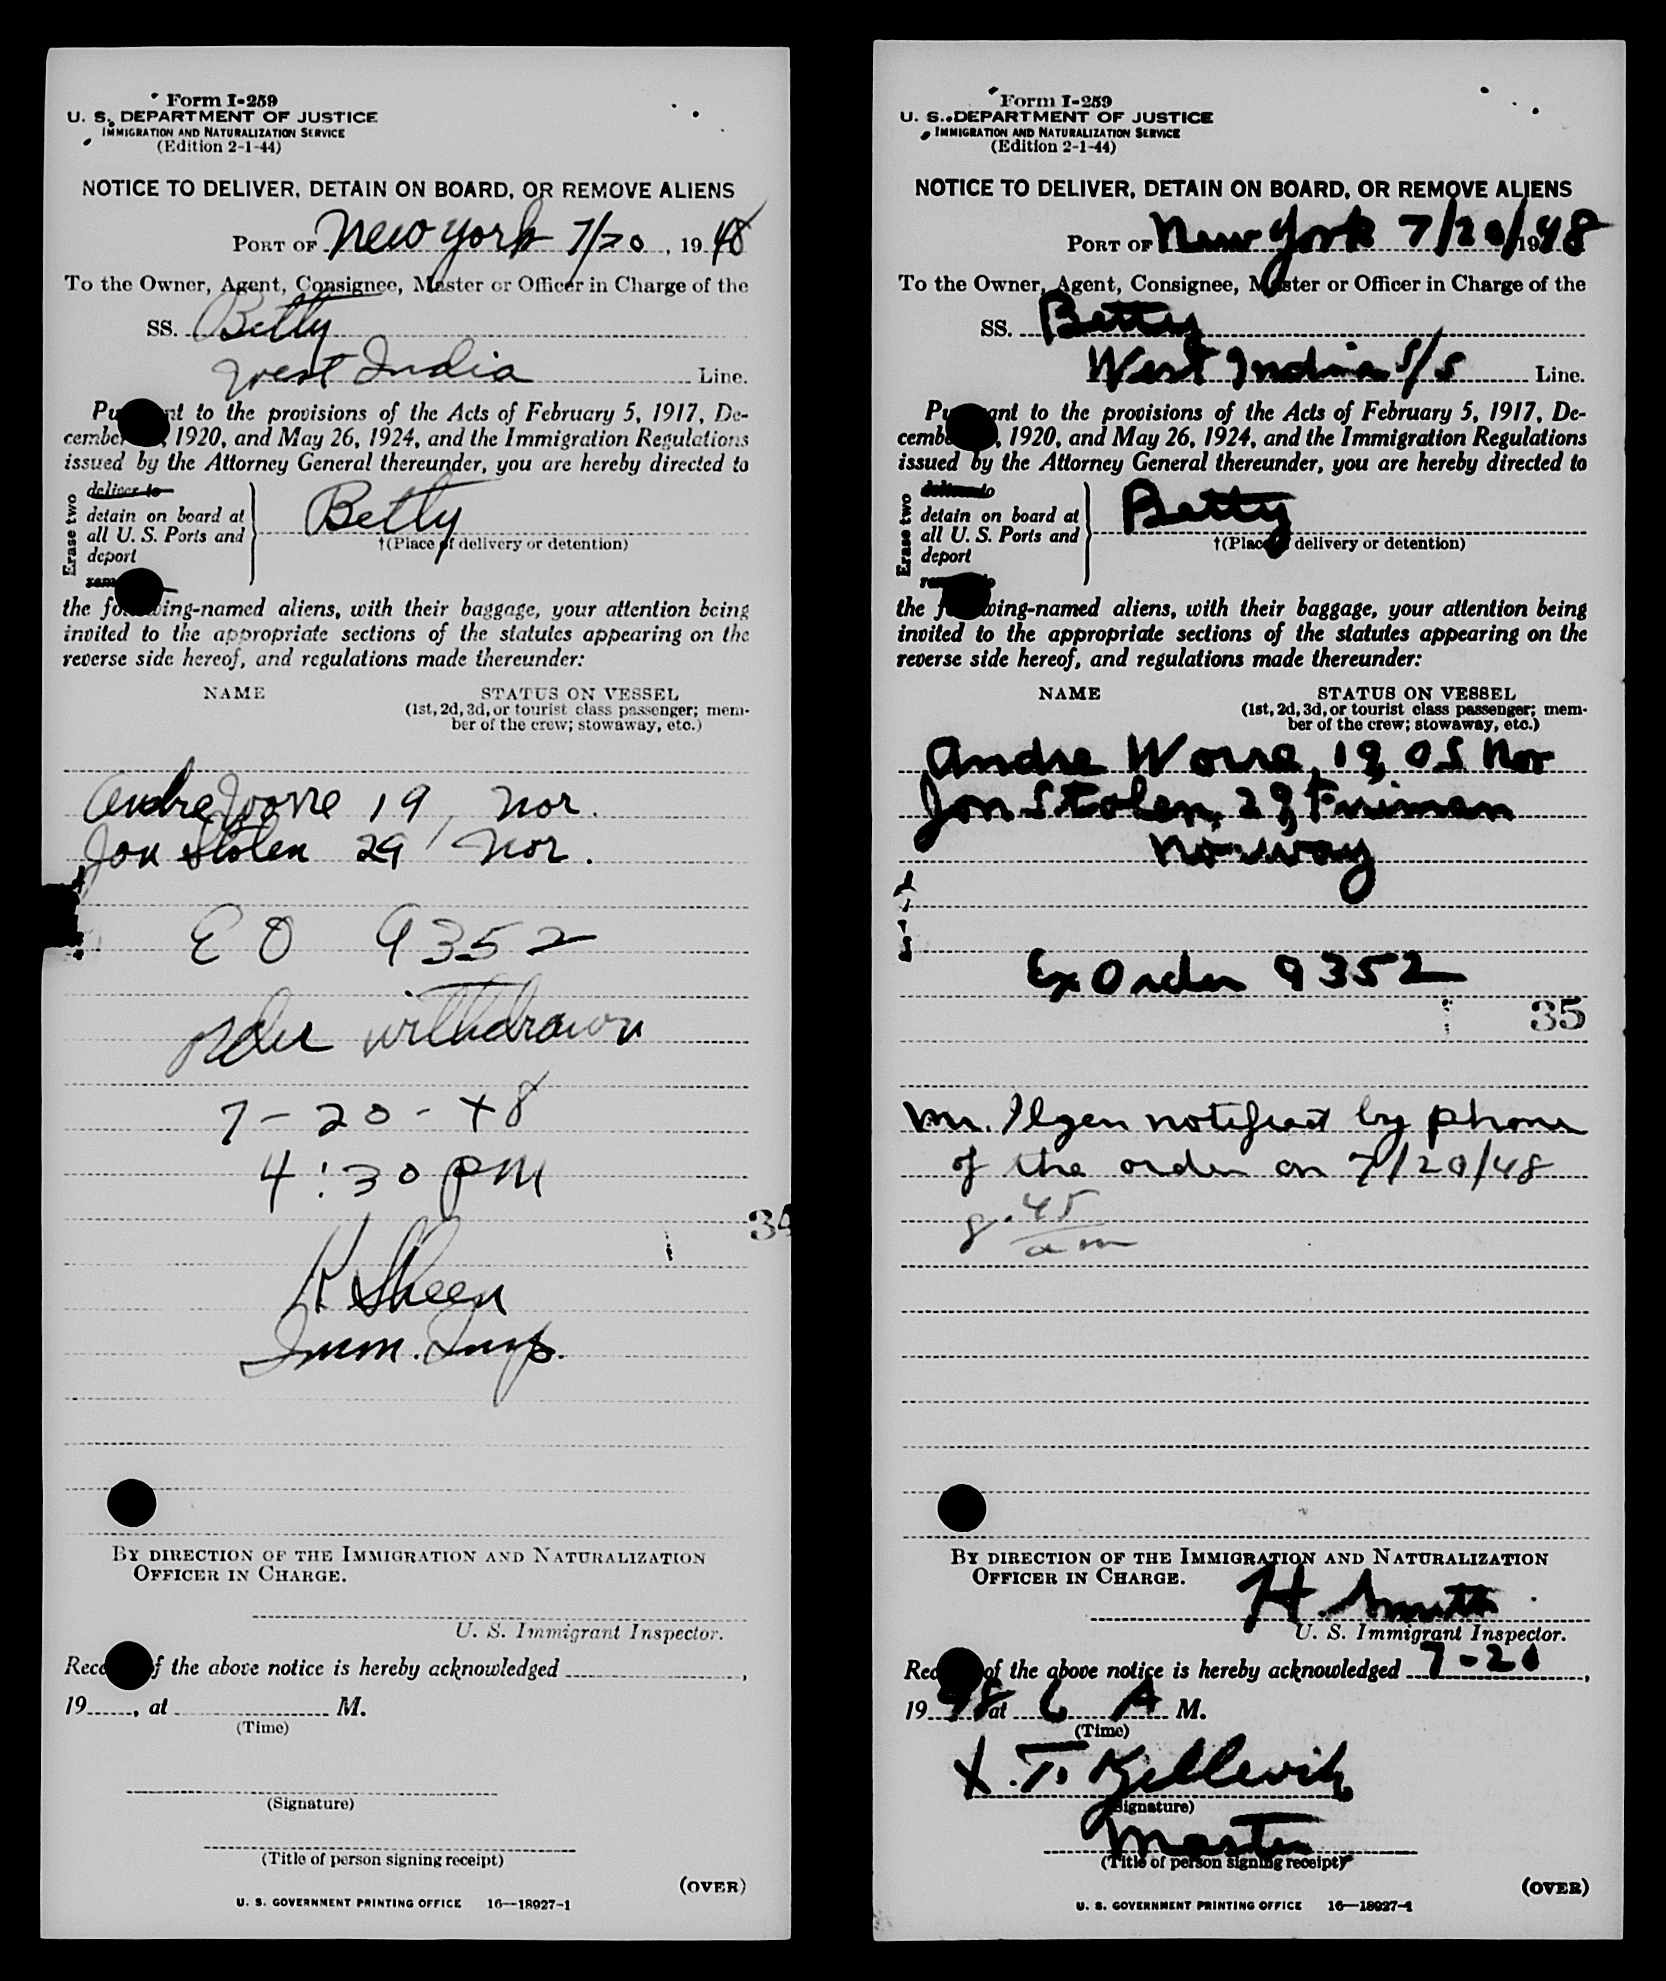 Form I-259
U. S. DEPARTMENT OF JUSTICE
IMMIGRATION AND NATURALIZATION SERVICE
(Edition 2-1-44)
NOTICE TO DELIVER, DETAIN ON BOARD, OR REMOVE ALIENS
PORT OF New York 7/20, 1948
To the Owner, Agent, Consignee, Master or Officer in Charge of the
SS. Betty
West India Line.
to the provisions of the Acts of February 5, 1917, De-
cember 1920, and May 26, 1924, and the Immigration Regulations
issued by the Attorney General thereunder, you are hereby directed to
Erase two
deliver to
detain on board at
all U. S. Ports and
deport
Betty
†(Place of delivery or detention)
the following-named aliens, with their baggage, your attention being
invited to the appropriate sections of the statutes appearing on the
reverse side hereof, and regulations made thereunder:
NAME STATUS ON VESSEL
(1st, 2d, 3d, or tourist class passenger; mem-
ber of the crew; stowaway, etc.)
Andre Worre 19, Nor.
Jon Stolen 29, Nor.
E O 9352
order withdrawn
7-20-48
4:30 PM
34
K Sheen
Imm. Insp.
BY DIRECTION OF THE IMMIGRATION AND NATURALIZATION
OFFICER IN CHARGE.
U. S. Immigrant Inspector.
of the above notice is hereby acknowledged ,
19 , at M.
(Time)
(Signature)
(Title of person signing receipt)
(OVER)
U. S. GOVERNMENT PRINTING OFFICE 16—18927-1
Form I-259
U. S. DEPARTMENT OF JUSTICE
IMMIGRATION AND NATURALIZATION SERVICE
(Edition 2-1-44)
NOTICE TO DELIVER, DETAIN ON BOARD, OR REMOVE ALIENS
PORT OF New York 7/20/1948
To the Owner, Agent, Consignee, Master or Officer in Charge of the
SS. Betty
West Indies S/S Line.
to the provisions of the Acts of February 5, 1917, De-
cember 1920, and May 26, 1924, and the Immigration Regulations
issued by the Attorney General thereunder, you are hereby directed to
Erase two
deliver to
detain on board at
all U. S. Ports and
deport
Betty
†(Place of delivery or detention)
the following-named aliens, with their baggage, your attention being
invited to the appropriate sections of the statutes appearing on the
reverse side hereof, and regulations made thereunder:
NAME STATUS ON VESSEL
(1st, 2d, 3d, or tourist class passenger; mem-
ber of the crew; stowaway, etc.)
Andre Worre, 19, OS Nor
Jon Stolen, 29, Fireman
Norway
Ex Order 9352
35
Mr. Ilgen notified by phone
of the order on 7/20/48
8.45
am
BY DIRECTION OF THE IMMIGRATION AND NATURALIZATION
OFFICER IN CHARGE.
H. Smith
U. S. Immigrant Inspector.
of the above notice is hereby acknowledged 7-20,
1948 at 6 A M.
(Time)
X. T. Kellevik
(Signature)
Master
(Title of person signing receipt)
(OVER)
U. S. GOVERNMENT PRINTING OFFICE 16—18927-1